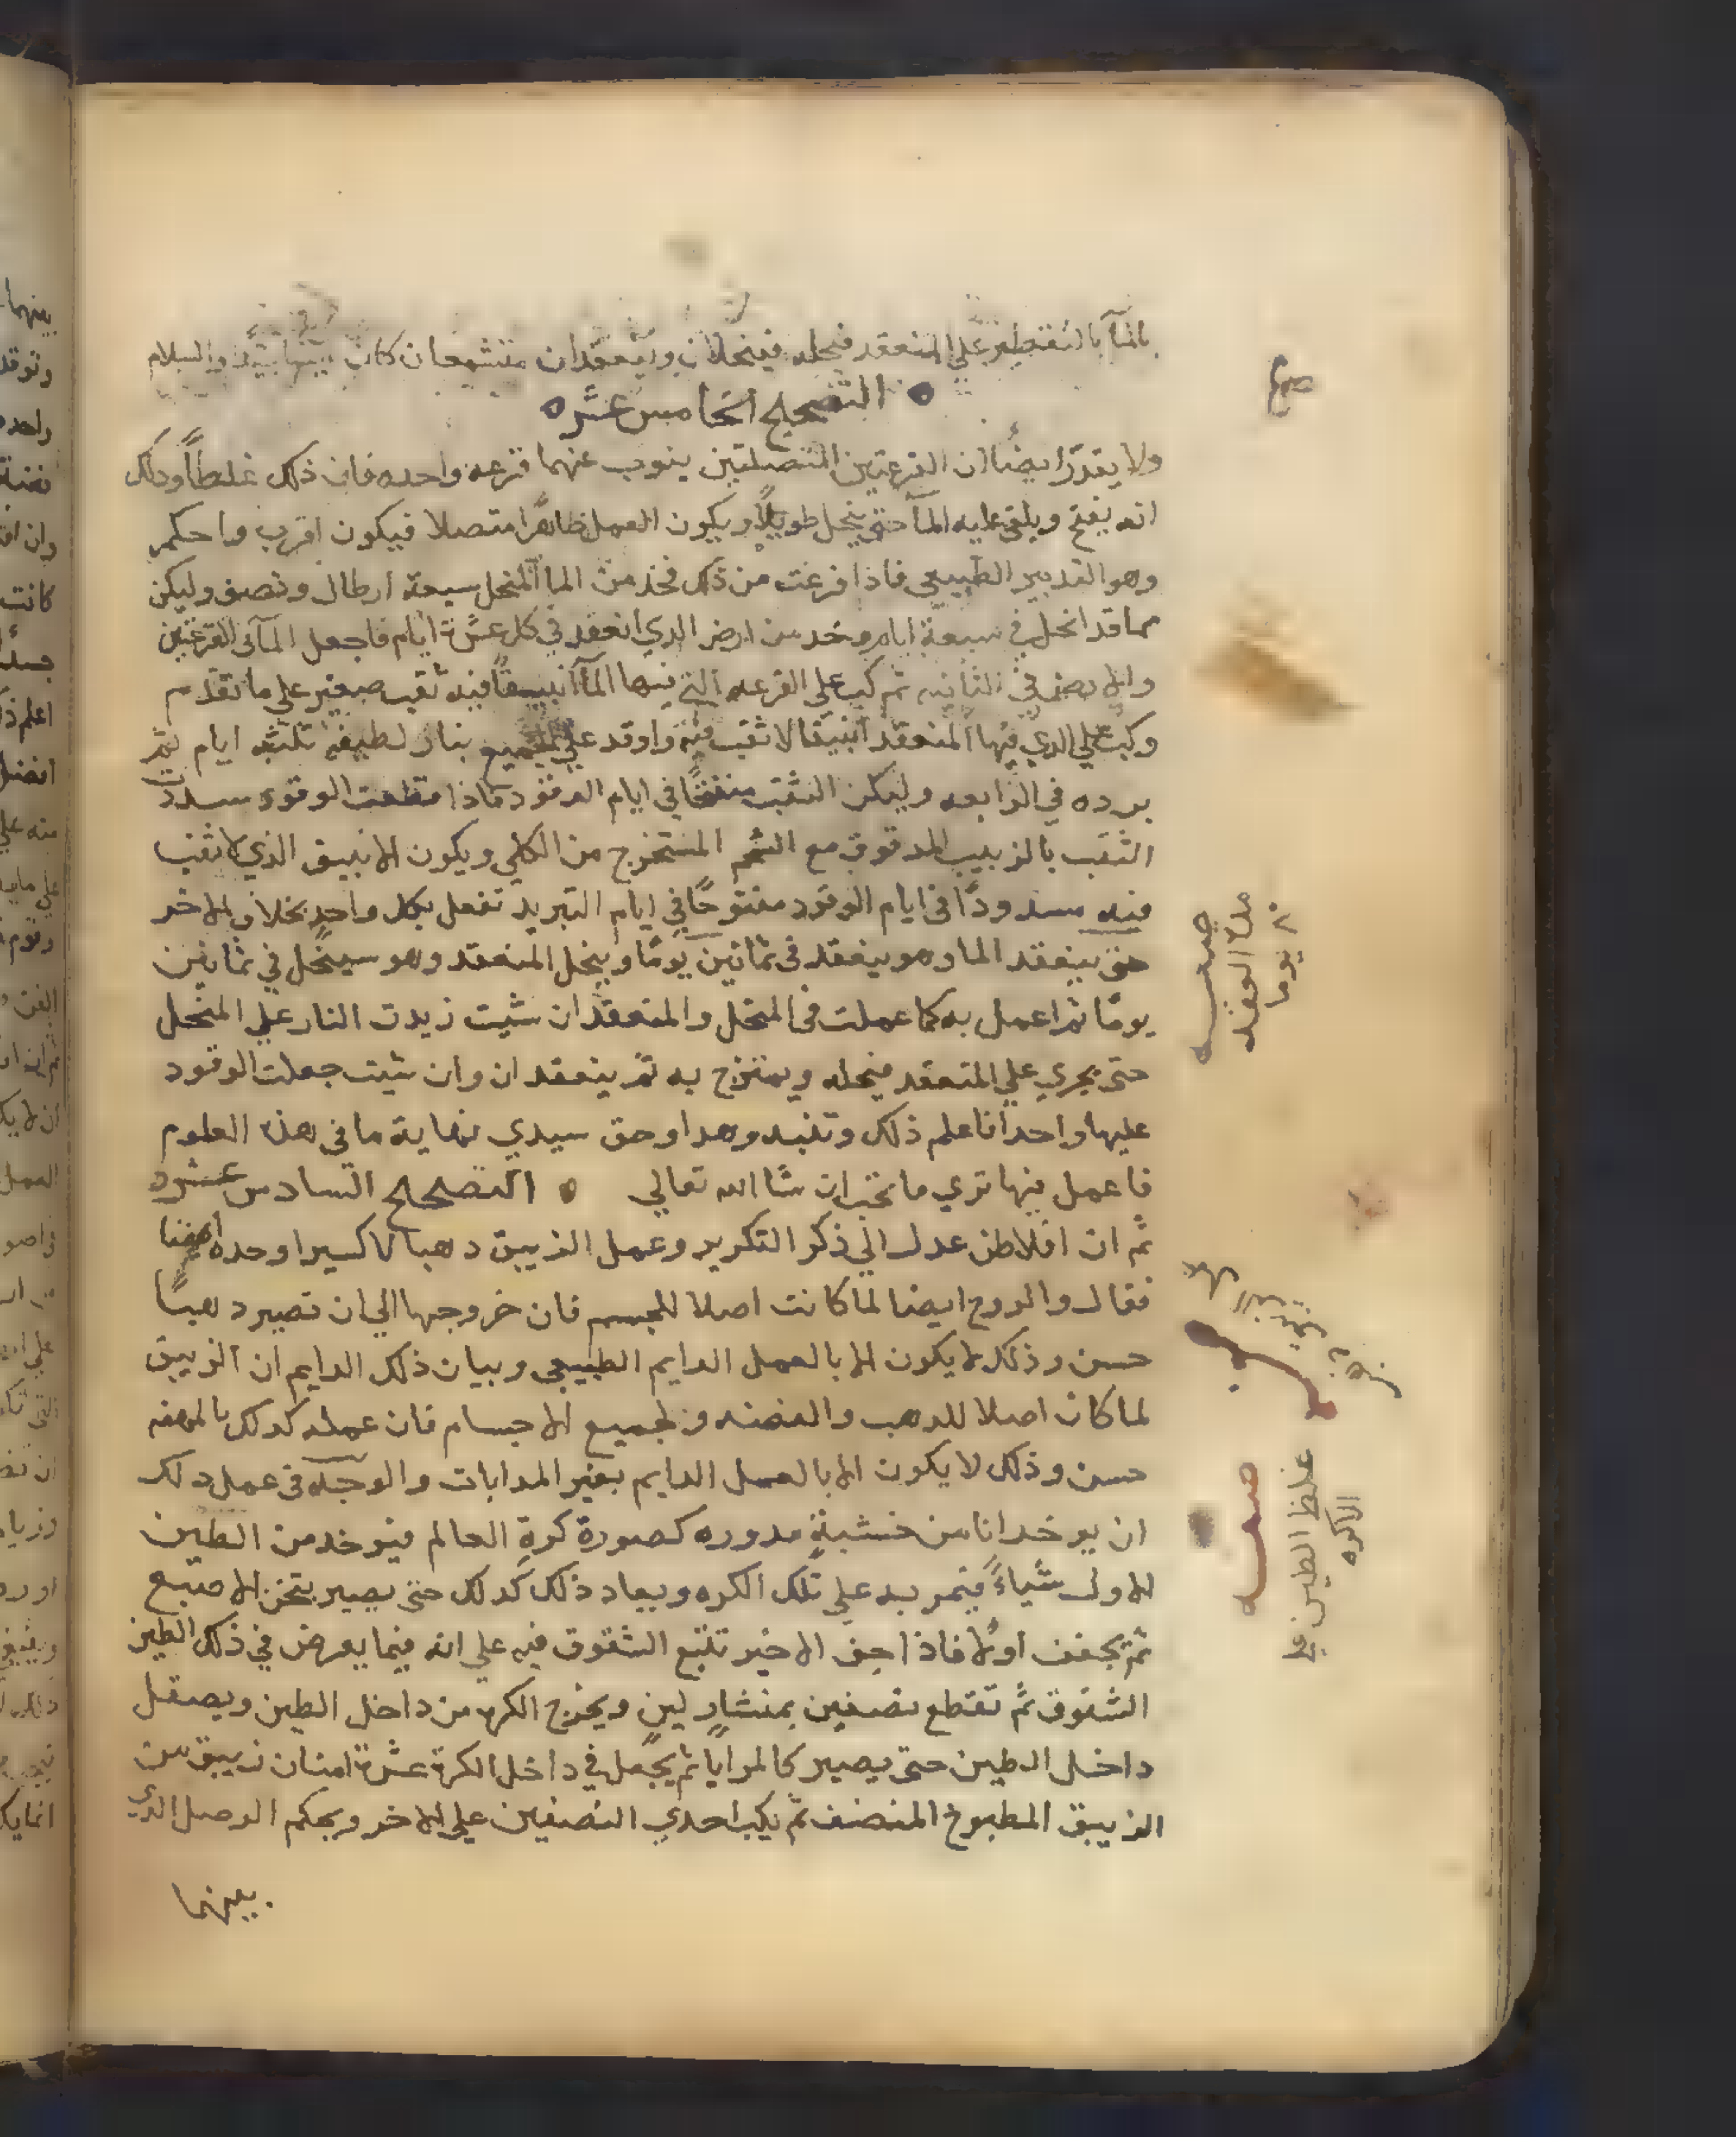 بالمآ بالتقطير علي المنعقد فيحله فينحلان وينعقدان متشمعان كان والسلام
التصحيح الخامس عشره
ولا يقدر ايضا ان القرعتين المتصلتين ينوب عنهما قرعه واحده فان ذلك غلطا وذلك
انه يفتح ويلقي عليه المآ حتي ينحل طويلا ويكون العمل ظاهرا متصلا فيكون اقرب واحكم
وهو التدبير الطبيعي فاذا فرغت من ذلك فخذ من الما المنحل سبعة ارطال ونصف وليكن
مما قد انحل في سبعة ايام وخد من ارض الدي انعقد في كل عشرة ايام فاجعل المآ في القرعتين
والارض في الثانيه ثم ركب علي القرعه التي فيها المآ انبيقا فيه ثقب صغير علي ما تقدم
وركب علي الدي فيها المنعقد انبيقا لا ثقب فيه واوقد علي الجميع بنار لطيفة ثلثه ايام ثم
برده في الرابعه وليكن الثقب منفتحا في ايام الوقود فاذا قطعت الوقود سددت
الثقب بالزبيب المدقوق مع الشحم المستخرج من الكلي ويكون الانبيق الذي لا ثقب
فيه مسدودا في ايام الوقود مفتوحا في ايام التبريد تفعل بكل واحد بخلاف الاخر
حتي ينعقد الما وهو ينعقد في ثمانين يوما وينحل المنعقد وهو سينحل في ثمانين
يوما ثم اعمل به كما عملت في المنحل والمنعقد ان شيت زيدت النار علي المنحل
حتي يجري علي المنعقد فيحله ويمتزج به ثم ينعقدان وان شيت جعلت الوقود
عليها واحدا فاعلم ذلك وهدا وحق سيدي نهاية ما في هذه العلوم
فاعمل فيها تري ما تحب ان شا الله تعالي ه التصحيح السادس عشره
ثم ان افلاطن عدل الي ذكر التكرير وعمل الزيبق دهبا لاكسيرا وحده ايضا
فقال والروح ايضا لما كانت اصلا للجسم فان خروجها الي ان تصير دهبا
حسن وذلك لا يكون الا بالعمل الدايم الطبيعي وبيان ذلك الدايم ان الزيبق
لما كان اصلا للدهب والفضه ولجميع الاجسام فان عمله كدلك
حسن وذلك لا يكون الا بالعمل الدايم بغير المدابات والوجه في عمل دلك
ان يوخد انا من خشبة مدوره كصورة كرة العالم فيوخد من الطين
الاول شياء فيمر بد علي تلك الكره ويعاد ذلك كدلك حتي يصير بتخن الاصبع
ثم يجفف اولا فاذا جف الاخير تتبع الشقوق فيه علي انه فيما يعرض في ذلك الطين
الشقوق ثم تقطع نصفين بمنشار لين ويخرج الكره من داخل الطين ويصقل
داخل الطين حتي يصير كالمرايا ثم يجعل في داخل الكرة عشرة امنان زيبق من
الزيبق المطبوخ المنصف ثم يركب احدي النصفين علي الاخر ويحكم الوصل الدي
بينهما
مدة العقد
٨٠ يوما
غلظ الطين علي
الاكره